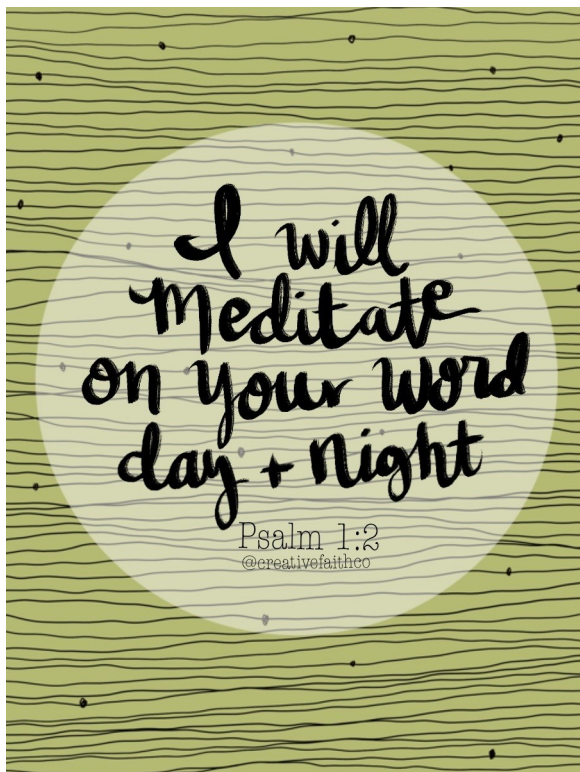 I will
Meditate
on your word
day + night
Psalm 1:2
@creativefaithco